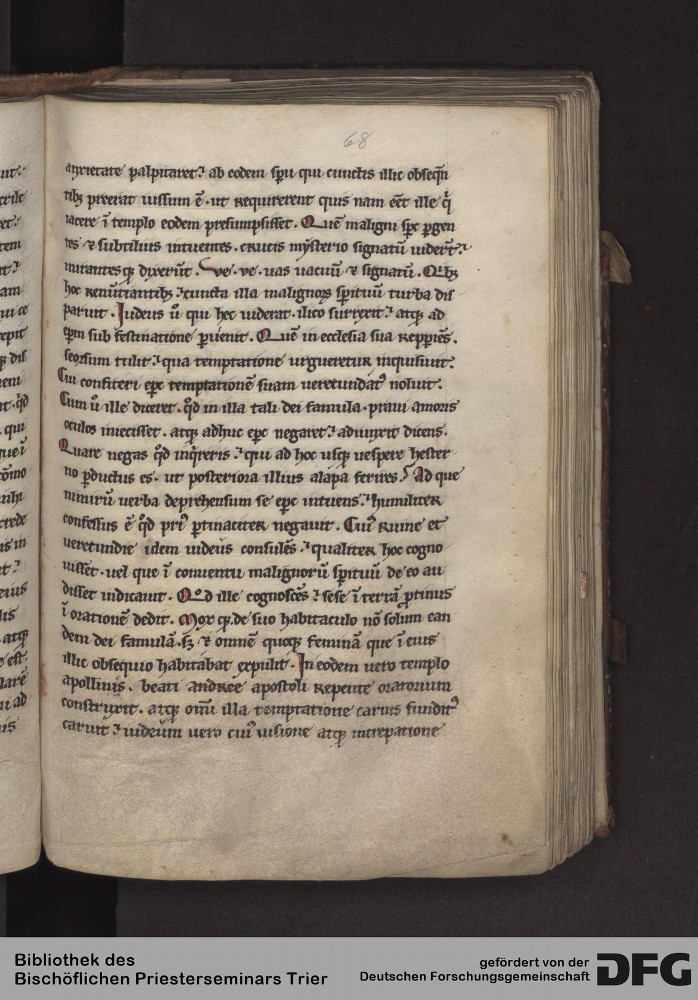 68
anxietate palpitaret. ab eodem spu qui cunctis illic obsequn
tibꝫ preerat iussum ē. ut requirerent quis nam eēt ille q̄
iacere ī templo eodem presumpsisset. Quē maligni spc pgen
tes ⁊ subtilius intuentes. crucis mysterio signatū uidert.
mirantesqꝫ dixerūt. ve. ve. uas uacuū ⁊ signatū. Qibꝫ
hoc renūtiantibꝫ. cuncta illa malignoꝝ spirituū turba dis
paruit. Iudeus ū qui hec uiderat. ilico surrexit. atqꝫ ad
epm sub festinatione puenit. Quē in ecclesia sua reppiēs.
seorsum tulit. qua temptatione urgueretur inquisiuit.
Cui confiteri epc temptationē suam uerecundatꝰ noluit.
Cum ū ille diceret. qd in illa tali dei famula. praui amoris
oculos iniecisset. atqꝫ adhuc epc negaret. adiunxit dicens.
Quare negas qd inqreris. qui ad hoc usqꝫ uespere hester
no pductus es. ut posteriora illius alapa ferires. Ad que
nimirū uerba deprehensum se epc intuens. humiliter
confessus ē qd priꝰ ptinaciter negauit. Cuiꝰ ruine et
uerecundie idem iudeus consulēs. qualiter hoc cogno
uisset. uel que ī conuentu malignorū spirituū de eo au
disset indicauit. Qd ille cognoscēs. sese ī terrā ptinus
ī orationē dedit. Mox qꝫ de suo habitaculo nō solum ean
dem dei famulā. sꝫ ⁊ omnē quoqꝫ feminā que ī eius
illic obsequio habitabat expulit. In eodem uero templo
apollinis. beati andree apostoli repente oratorium
construxit. atqꝫ omī illa temptatione carnis funditꝰ
caruit. iudeum uero cuiꝰ uisione atqꝫ increpatione
Bibliothek des
Bischöflichen Priesterseminars Trier
gefördert von der
Deutschen Forschungsgemeinschaft
DFG